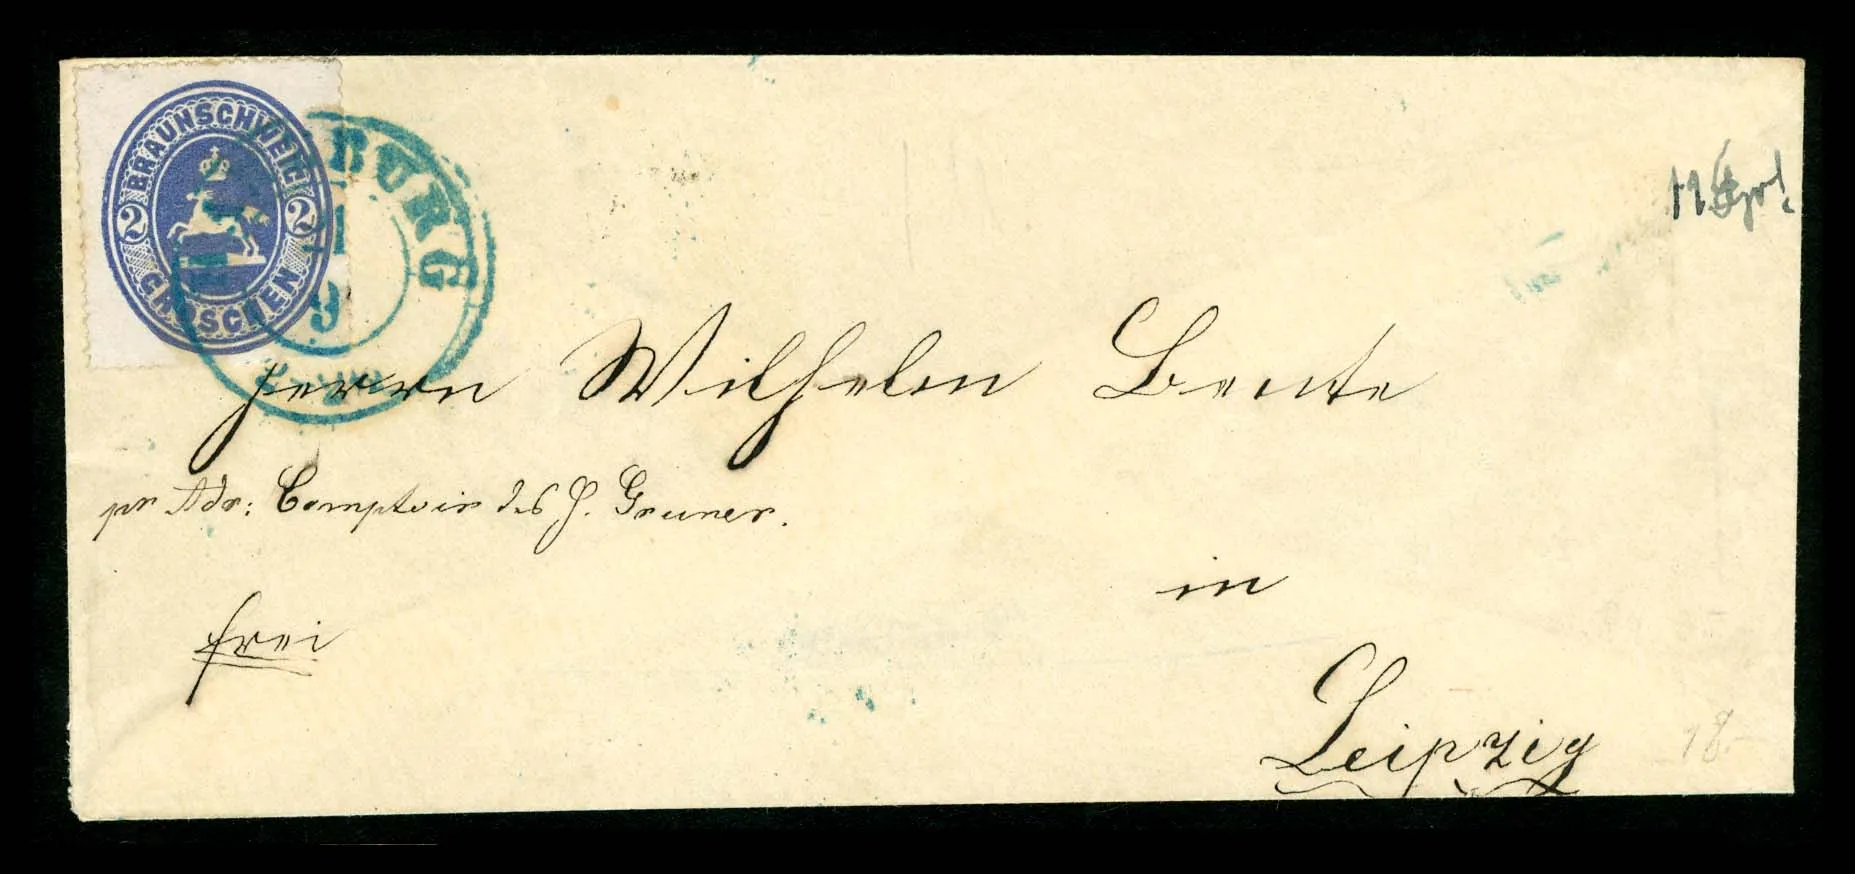 BRAUNSCHWEIG
2 2
GROSCHEN
BURG
1
9
Herrn Wilhelm Bente
pr Adr: Comptoir des H. Gruner.
in
frei
Leipzig
18-